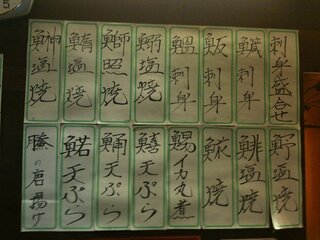 刺身盛合せ
刺身
魬刺身
鰛刺身
鰯塩焼
鰤照焼
塩焼
鰰塩焼
塩焼
鯡塩焼
焼
鰑イカ丸煮
鱚天ぷら
鯒天ぷら
鰙天ぷら
の唐揚げ
5